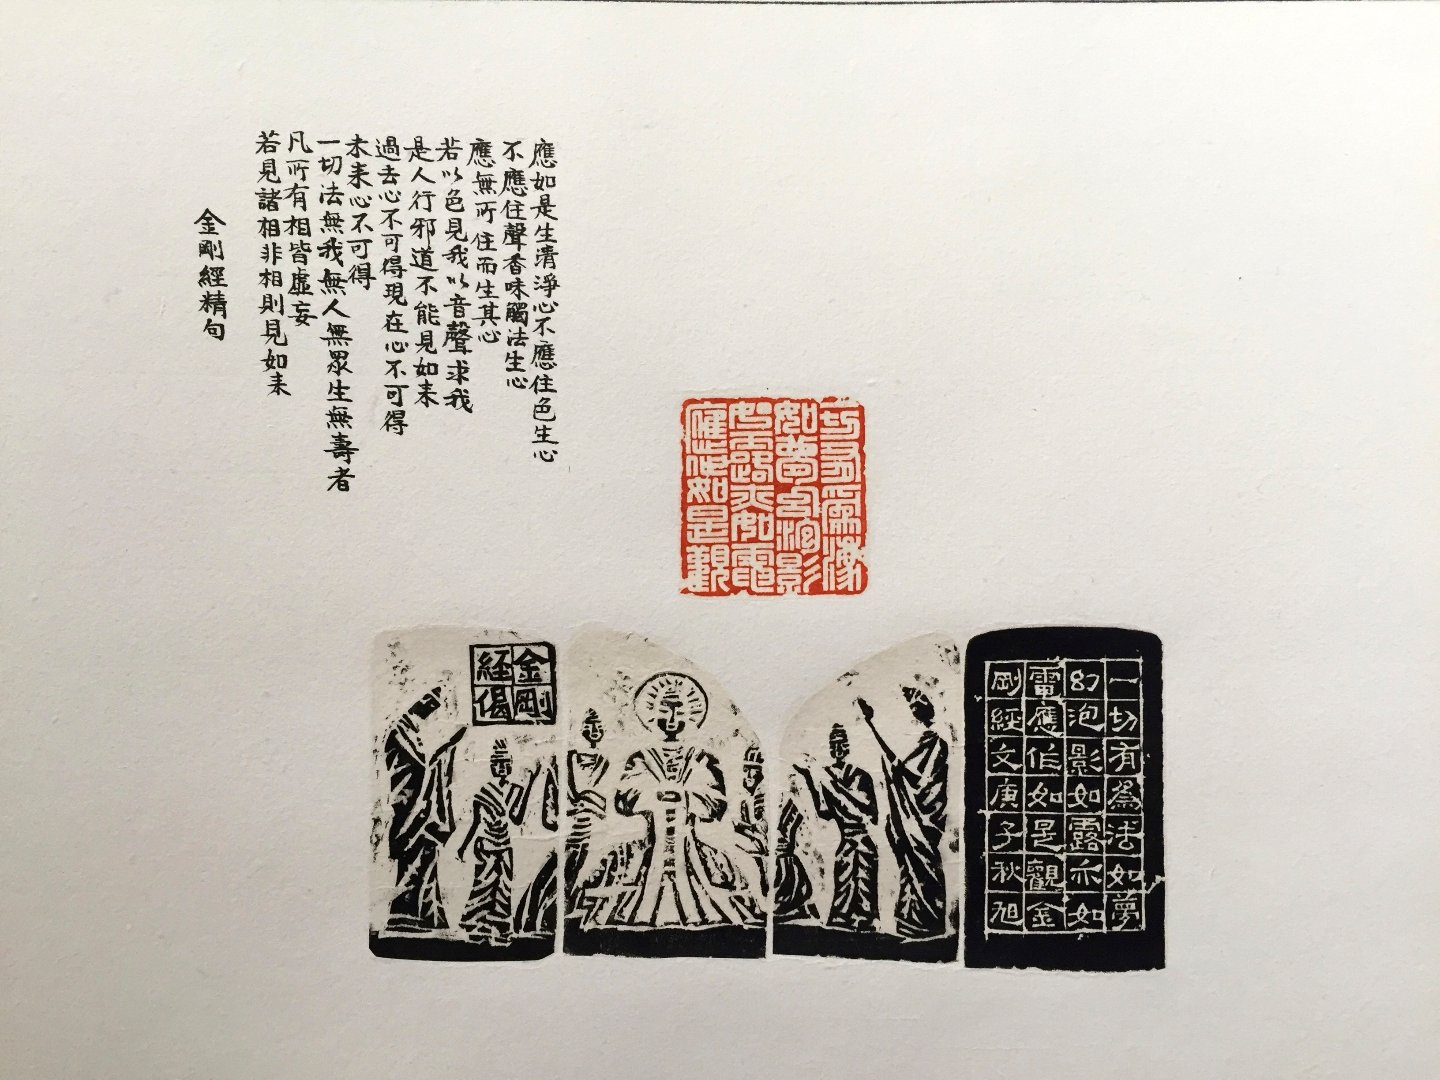 應如是生清淨心不應住色生心
不應住聲香味觸法生心
應無所住而生其心
若以色見我以音聲求我
是人行邪道不能見如来
過去心不可得現在心不可得
未来心不可得
一切法無我無人無眾生無壽者
凡所有相皆虛妄
若見諸相非相則見如来
金剛經精句
一切有為法
如夢幻泡影
如露亦如電
應作如是觀
金剛
経偈
一切有為法如夢
幻泡影如露亦如
電應作如是觀金
剛經文庚子秋旭